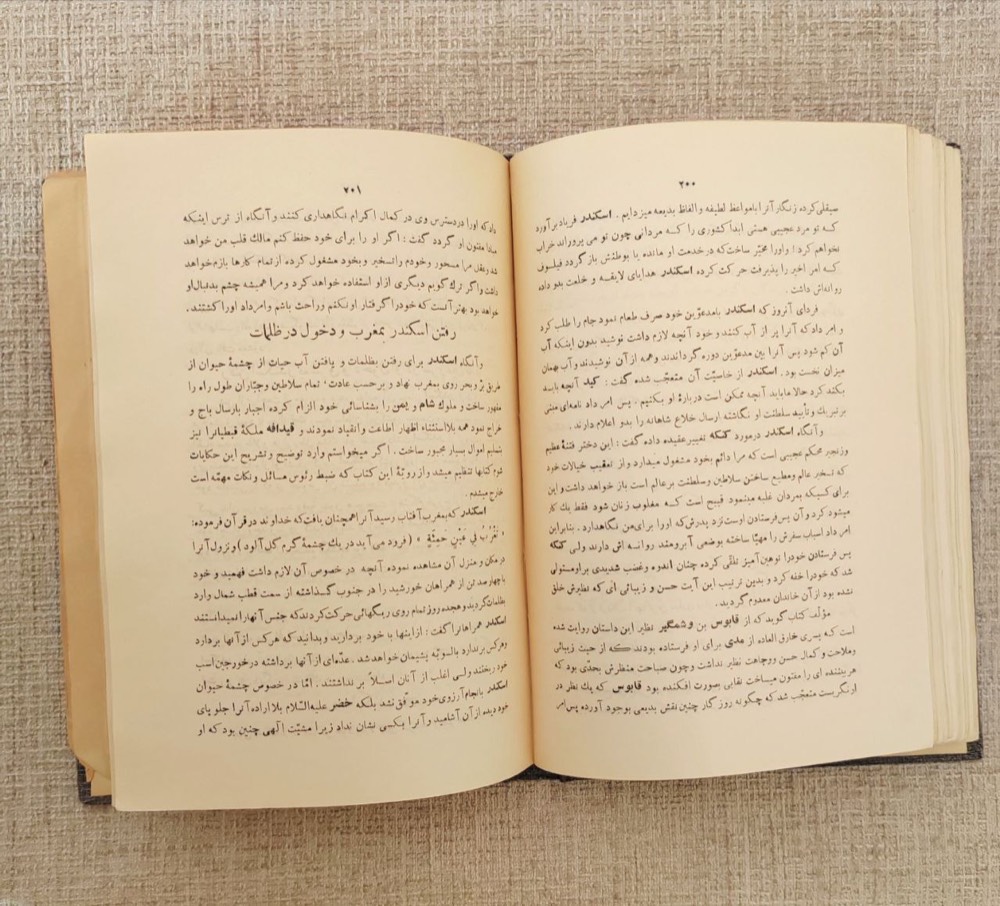 ۲۰۰
سیقلی کرده زنگار آنرا با مواعظ لطیفه و الفاظ بدیعه میزدایم . اسکندر فریاد برآورد
که تو مرد عجیبی هستی ابداً کشوری را که مردانی چون تو می پروراند خراب
نخواهم کرد! واورا مخیّر ساخت که در خدمت او مانده یا بوطنش باز گردد فیلسوف
که امر اخیر را پذیرفت حرکت کرده اسکندر هدایای لایقه و خلعت بدو داده
روانه‌اش داشت .
فردای آنروز که اسکندر بامدعوّین خود صرف طعام نمود جام را طلب کرد
و امر داد که آنرا پر از آب کنند و خود آنچه لازم داشت نوشید بدون اینکه آب
آن کم شود پس آنرا بین مدعوّین دوره گرداندند و همه از آن نوشیدند و آب بهمان
میزان نخست بود . اسکندر از خاصیّت آن متعجّب شده گفت : کید آنچه بایسه
بکند کرد حالا مابایذ آنچه ممکن است دربارهٔ او بکنیم . پس امر داد نامه‌ای مبنی
بر تبریك و تأیید سلطنت او نگاشته ارسال خلاع شاهانه را بدو اعلام دارند .
و آنگاه اسکندر درمورد کنکه تغییر عقیده داده گفت : این دختر فتنهٔ عظیم
وزنجیر محکم عجیبی است که مرا دائم بخود مشغول میدارد و از تعقیب خیالات خود
که تسخیر عالم و مطیع ساختن سلاطین و سلطنت بر عالم است باز خواهد داشت و این
برای کسیکه بمردان غلبه مینمود قبیح است که مغلوب زنان شود فقط یك کار
میشود کرد و آن پس فرستادن اوست نزد پدرش که اورا برای من نگاهدارد . بنابراین
امر داد اسباب سفرش را مهیّا ساخته بوضعی آبرومند روانه اش دارند ولی کنکه
پس فرستادن خودرا توهین آمیز تلقّی کرده چنان اندوه و غضب شدیدی بر او مستولی
شد که خودرا خفه کرد و بدین ترتیب این آیت حسن و زیبائی که نظیرش خلق
نشده بود از آن خاندان معدوم گردید .
مؤلّف کتاب گوید که از قابوس بن وشمگیر نظیر این داستان روایت شده
است که پسری خارق العاده از هدی برای او فرستاده بودند که از حیث زیبائی
وملاحت و کمال حسن ووجاهت نظیر نداشت و چون صباحت منظرش بحدّی بود که
هر بیننده ای را مفتون میساخت نقابی بصورت افکنده بود قابوس که یك نظر در
اونگریست متعجّب شد که چگونه روز گار چنین نقش بدیعی بوجود آورده پس امر
۲۰۱
داد که اورا در دسترس وی در کمال اکرام نگاهداری کنند و آنگاه از ترس اینکه
مبادا مفتون او گردد گفت : اگر او را برای خود حفظ کنم مالك قلب من خواهد
شد وعقل مرا مسحور وخودم را تسخیر و بخود مشغول کرده از تمام کارها بازم خواهد
داشت و اگر ترك گویم دیگری از او استفاده خواهد کرد و مرا همیشه چشم بدنبال او
خواهد بود بهتر آنست که خودرا گرفتار او نکنم و راحت باشم و امر داد اورا کشتند .
رفتن اسکندر بمغرب و دخول در ظلمات
و آنگاه اسکندر برای رفتن بظلمات و یافتن آب حیات از چشمهٔ حیوان از
طریق برّ و بحر روی بمغرب نهاد و بر حسب عادت ، تمام سلاطین و جبّاران طول راه را
مقهور ساخت و ملوك شام و یمن را بشناسائی خود الزام کرده اجبار بارسال باج و
خراج نمود همه بلااستثناء اظهار اطاعت وانقیاد نمودند و قیدافه ملکهٔ قبطیانرا نیز
بتسلیم اموال بسیار مجبور ساخت . اگر میخواستم وارد توضیح و تشریح این حکایات
شوم کتابها تنظیم میشد و از رویّهٔ این کتاب که ضبط رئوس مسائل و نکات مهمّه است
خارج میشدم .
اسکندر که بمغرب آفتاب رسید آنرا همچنان یافت که خداوند در قرآن فرموده :
« تَغْرُبُ فِي عَيْنٍ حَمِئَةٍ » ( فرود می آید در یك چشمهٔ گرم گل آلود ) و نزول آنرا
در مکان و منزل آن مشاهده نموده آنچه در خصوص آن لازم داشت فهمید و خود
باچهار صد تن از همراهان خورشید را در جنوب گذاشته از سمت قطب شمال وارد
بظلمات گردید و هجده روز تمام روی ریگهائی حرکت کردند که جنس آنها را نمیدانستند
اسکندر همراهانرا گفت : ازاینها با خود بردارید و بدانید که هر کس از آنها بردارد
وهر کس برندارد بالسویّه پشیمان خواهد شد . عدّه‌ای از آنها برداشته در خورجین اسب
خود ریختند ولی اغلب از آنان اصلاً بر نداشتند . امّا در خصوص چشمهٔ حیوان
اسکندر بانجام آرزوی خود موفّق نشد بلکه خضر علیه السّلام بلا اراده آنرا جلو پای
خود دیده از آن آشامید و آنرا بکسی نشان نداد زیرا مشیّت الهی چنین بود که او